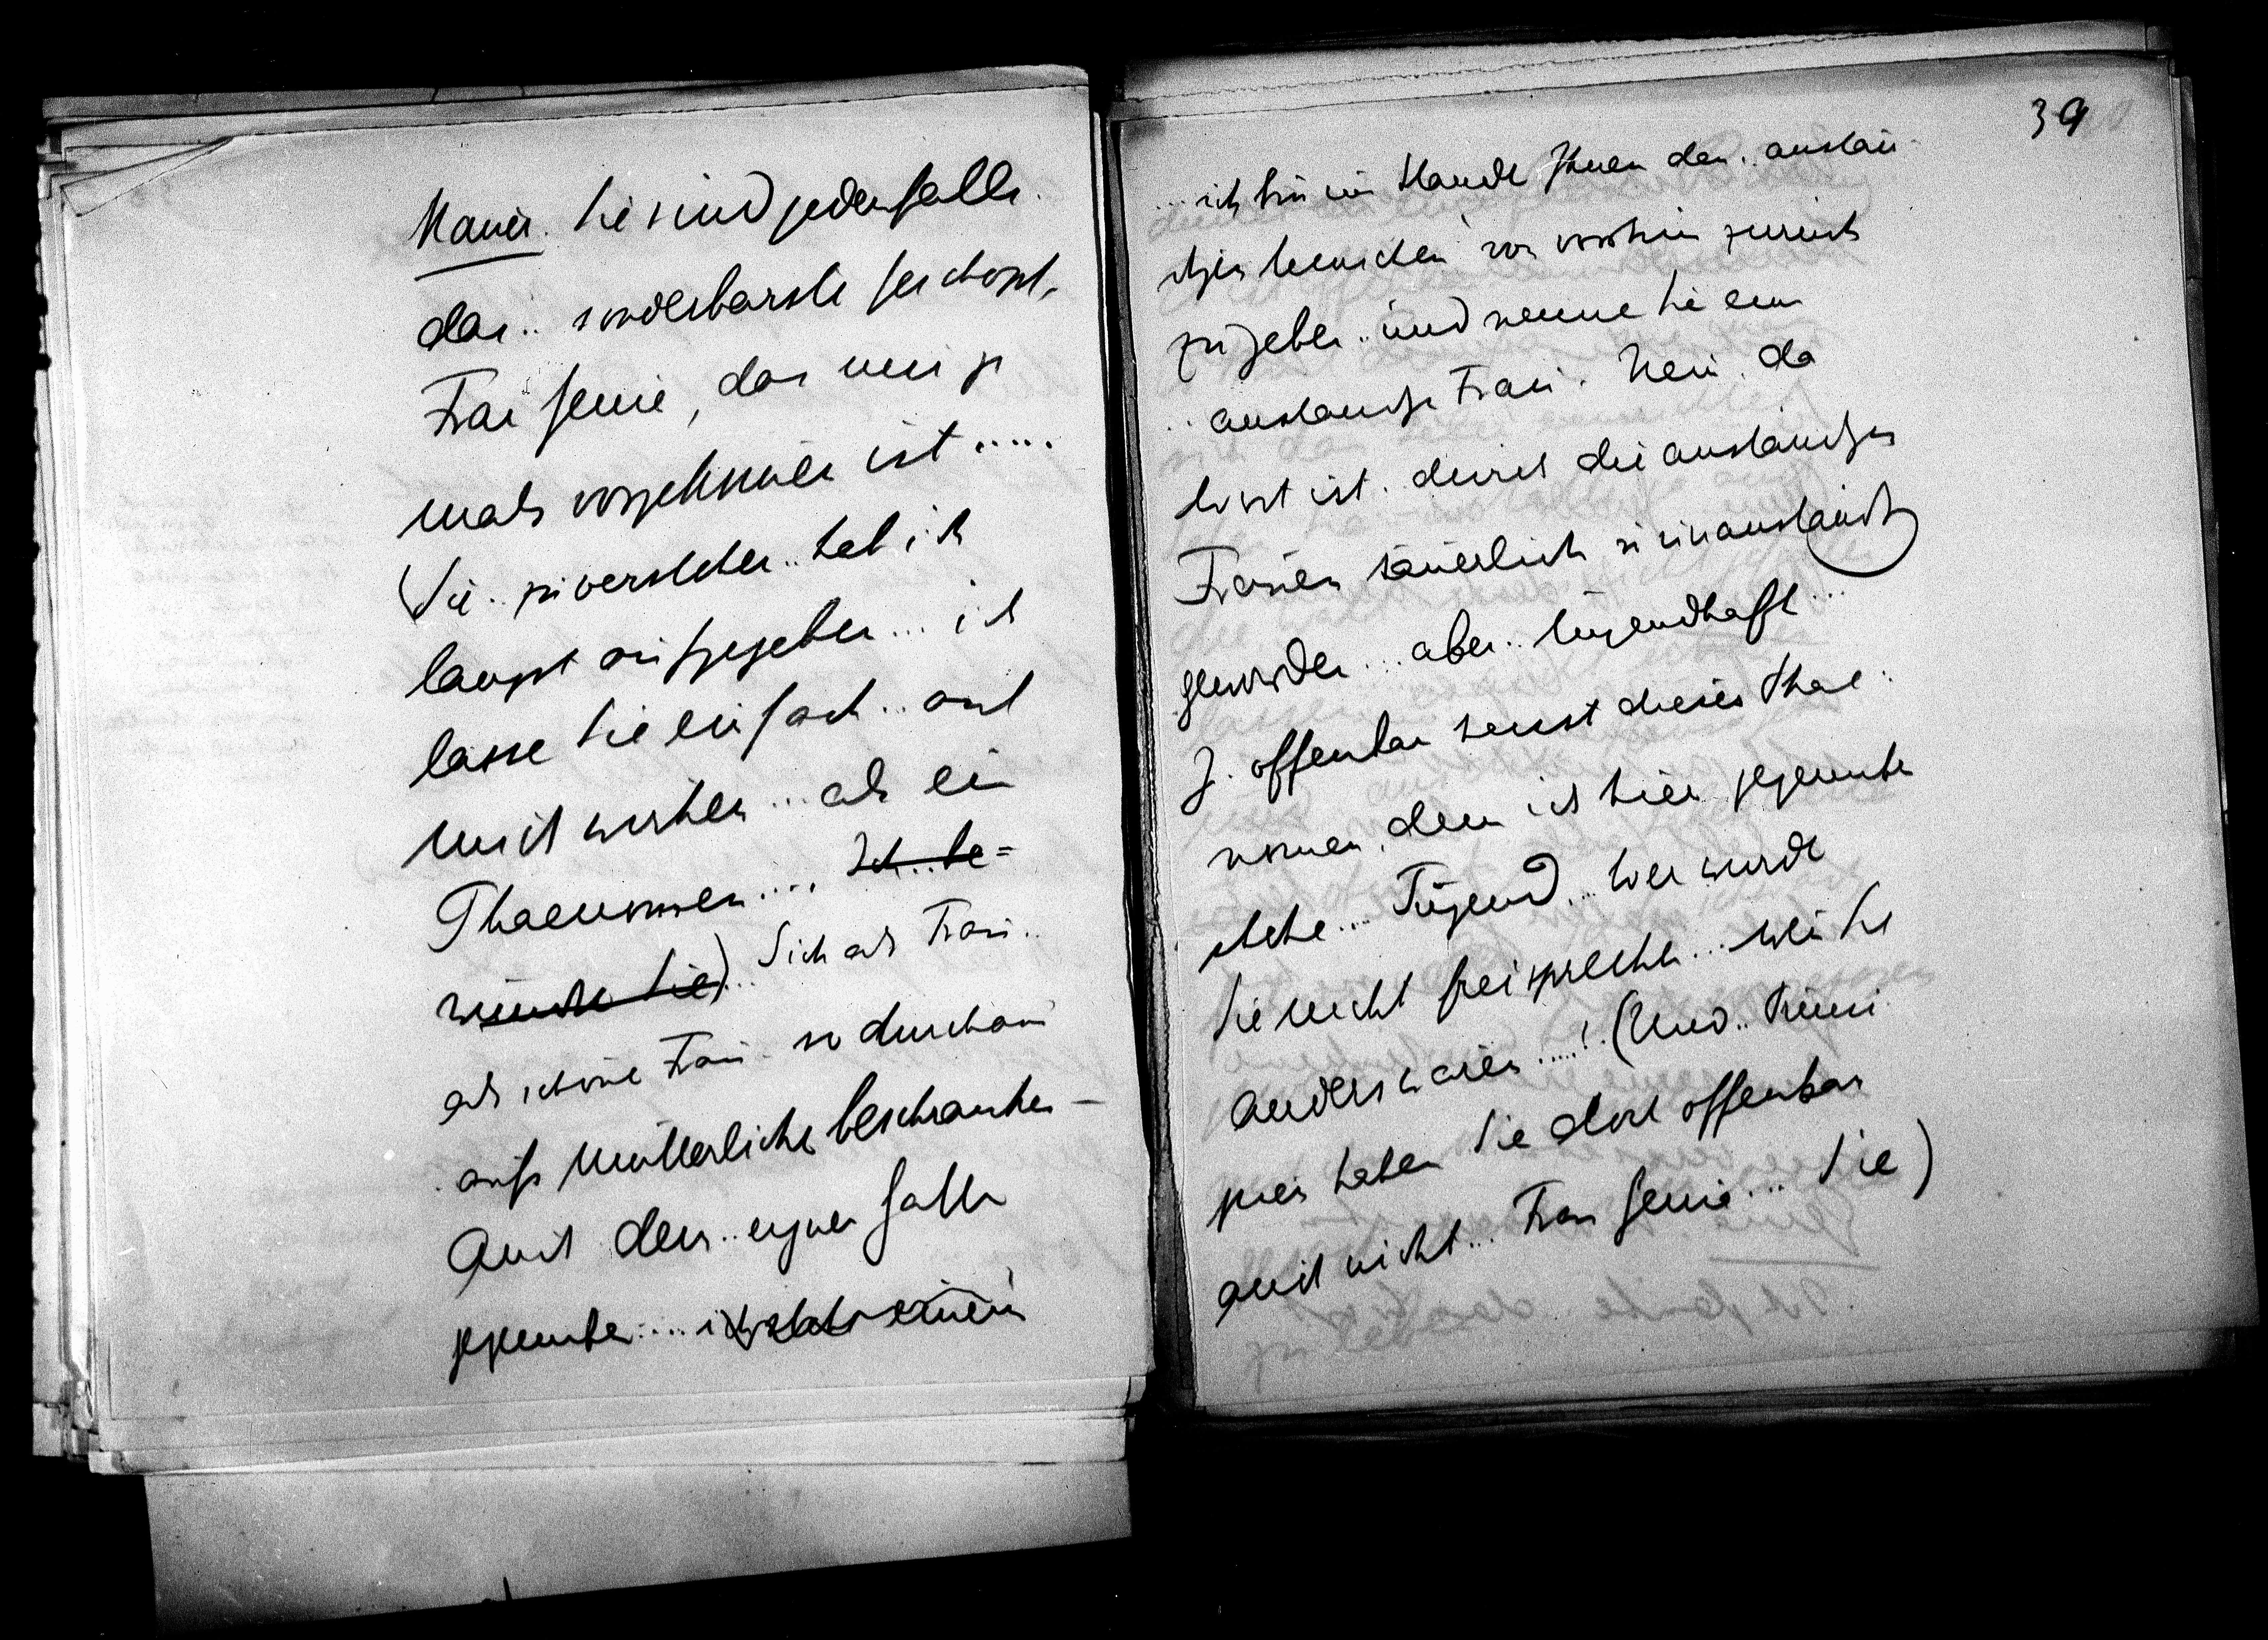 Mauer. Sie sind jedenfalls.
das.. sonderbarste Geschöpf,
Frau Genia, das mir je
mals vorgekommen ist.....
(Sie.. zu verstehen.. hab ich
längst aufgegeben... ich
lasse Sie einfach.. auf
mich wirken... als ein
Phaenomen.... Ich.. be=
wundre Sie)... Sich als Frau..
als schöne Frau.. so durchaus
aufs Mütterliche beschränken –
Auch dem.. eignen Gatten
gegenüber....
39
... ich bin im Stande Ihnen den.. anstän
digen Menschen von vorhin zurück
zugeben.. und nenne Sie eine
.. anständige Frau. Nein. da
sonst ist. derart die anständigen
Frauen säuerlich
geworden... aber.. tugendhaft...
J. offenbar heisst dieses Phae:
nomen, dem ich hier gegenüber
stehe.... Tugend... Wer würde
Sie nicht freisprechen... wenn Sie
anders wären.....! (Und..
haben Sie dort offenbar
auch nicht... Frau Genia.... Sie)